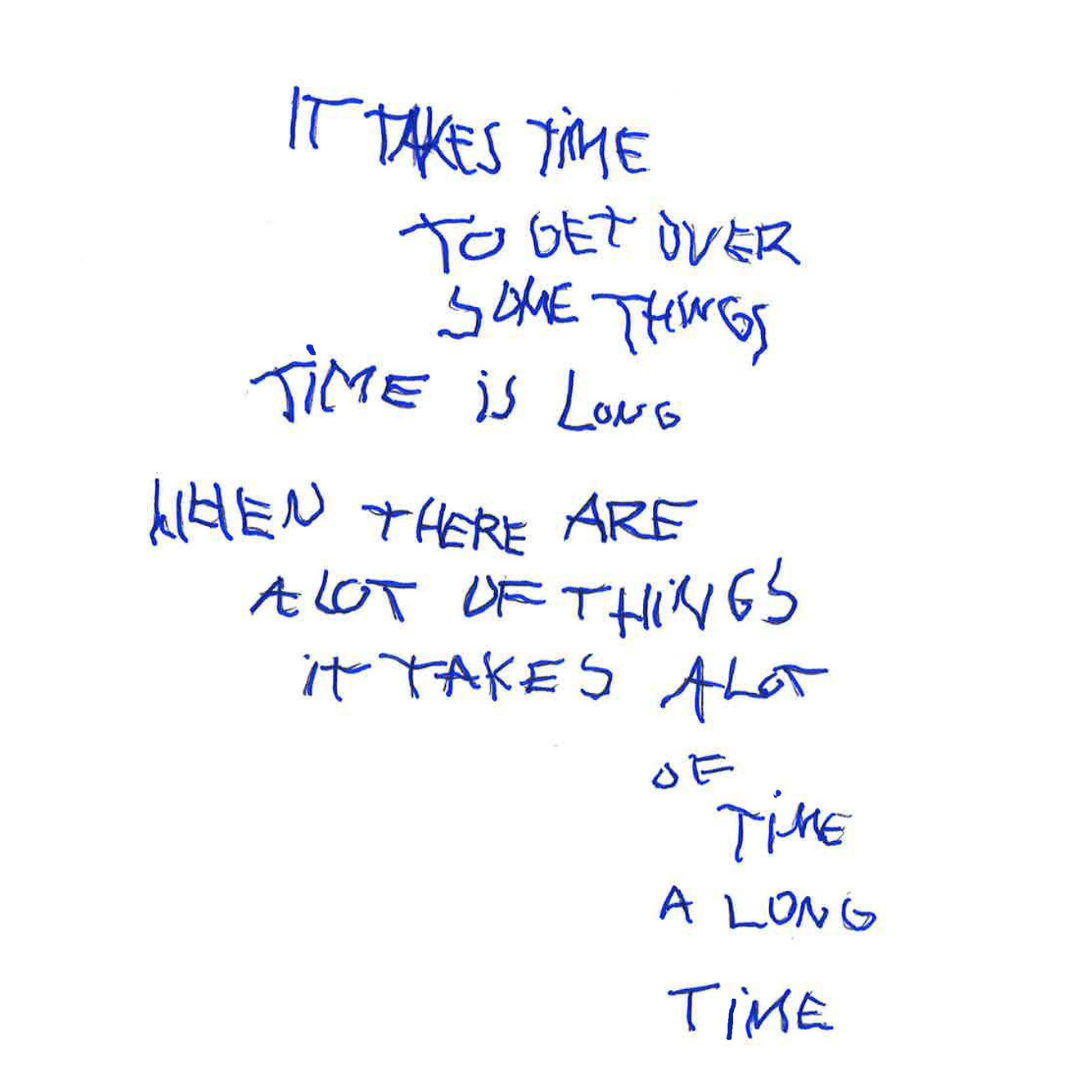 IT TAKES TiME
TO GET OVER
SOME THINGS
TiME iS LONG
WHEN THERE ARE
A LOT OF THiNGS
iT TAKES A LOT
OF
TiME
A LONG
TiME